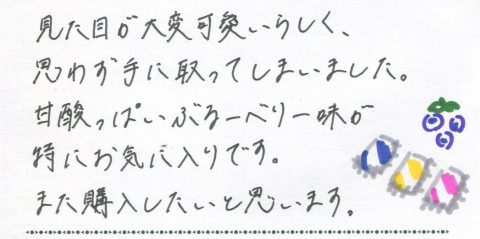 見た目が大変可愛いらしく、
思わず手に取ってしまいました。
甘酸っぱいぶるーべりー味が
特にお気に入りです。
また購入したいと思います。